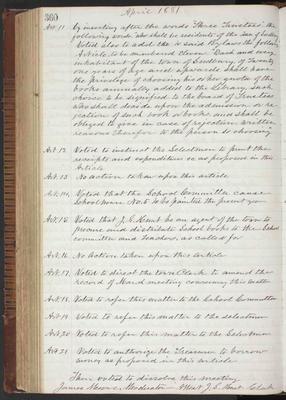 360
April 1881
Art. 11. by inserting after the words "Three Trustees" the
following words who shall be residents of the Town of
Voted also to add to said By laws the following
Article, to be numbered Eleven. "Each and every
inhabitant of the town of of Twenty
one years of age and upwards shall have
the privilege of choosing his or her quota of the
books annually added to the Library, such
choice to be signified to the board of Trustees
who shall decide upon the admission or re
jection of such book or books and shall be
obliged to give in case of rejection written
reasons therefor to the person so choosing"
Art. 12. Voted to instruct the Selectmen to print the
receipts and expenditures as proposed in this
Article
Art. 13 No action taken upon this article
Art. 14. Voted that the School Committee cause
Schoolhouse No. 5 to be painted the present year
Art. 15. Voted that J. S. Kent be an agent of the town to
procure and distribute School books to the School
committee and Teachers, as called for
Art. 16. No Action taken upon this article
Art. 17. Voted to direct the town Clerk to amend the
record of March meeting concerning this matter
Art. 18. Voted to refer this matter to the School Committee
Art. 19. Voted to refer this matter to the selectmen
Art. 20 Voted to refer this matter to the Selectmen
Art. 21. Voted to authorize the Treasurer to borrow
money as proposed in this article
Then voted to dissolve this meeting
James Moderator Attest J. S. Kent. Clerk